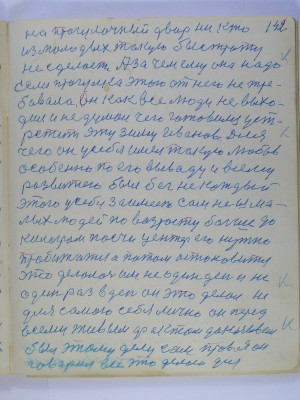 на прогулочный двор ни кто 142
из молодых такую быстроту
не сделает. А зачем ему она надо
если прогулка этого от него не тре-
бовала, он как все люди не выхо-
дил и не думал чего готовились
эту зиму Иванов. Для
чего он у себя имел такую любовь
особенно по его выводу и всему
развитию были бег не каждый
этого у себя займеет сам не ма-
лых людей по возрасту больше до
нужно
пробежать а потом остановится
это делалось им не один ден и не
один раз в ден он это делал не
для самого себя лично он перед
всеми живым фактом доказывал
был этому делу сам прав я он
говорил все это делал для